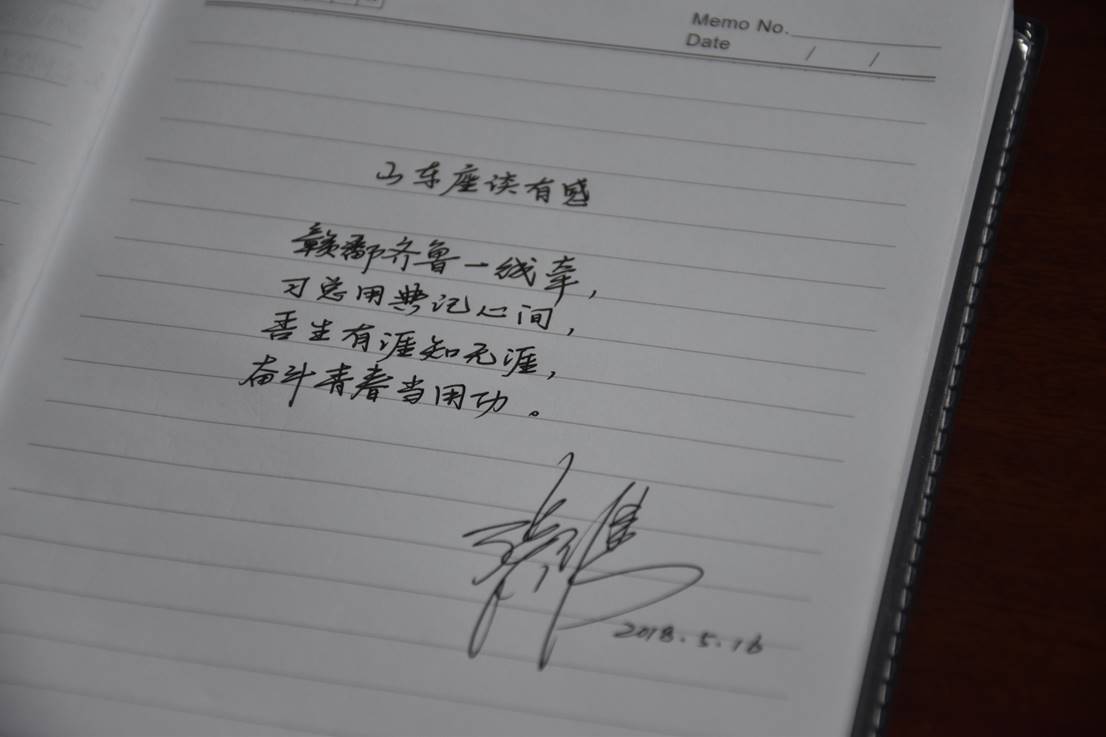 Memo No.
Date / /
山东座谈有感
赣鄱齐鲁一线牵，
习总用典记心间，
吾生有涯知无涯，
奋斗青春当用功。
2018.5.16